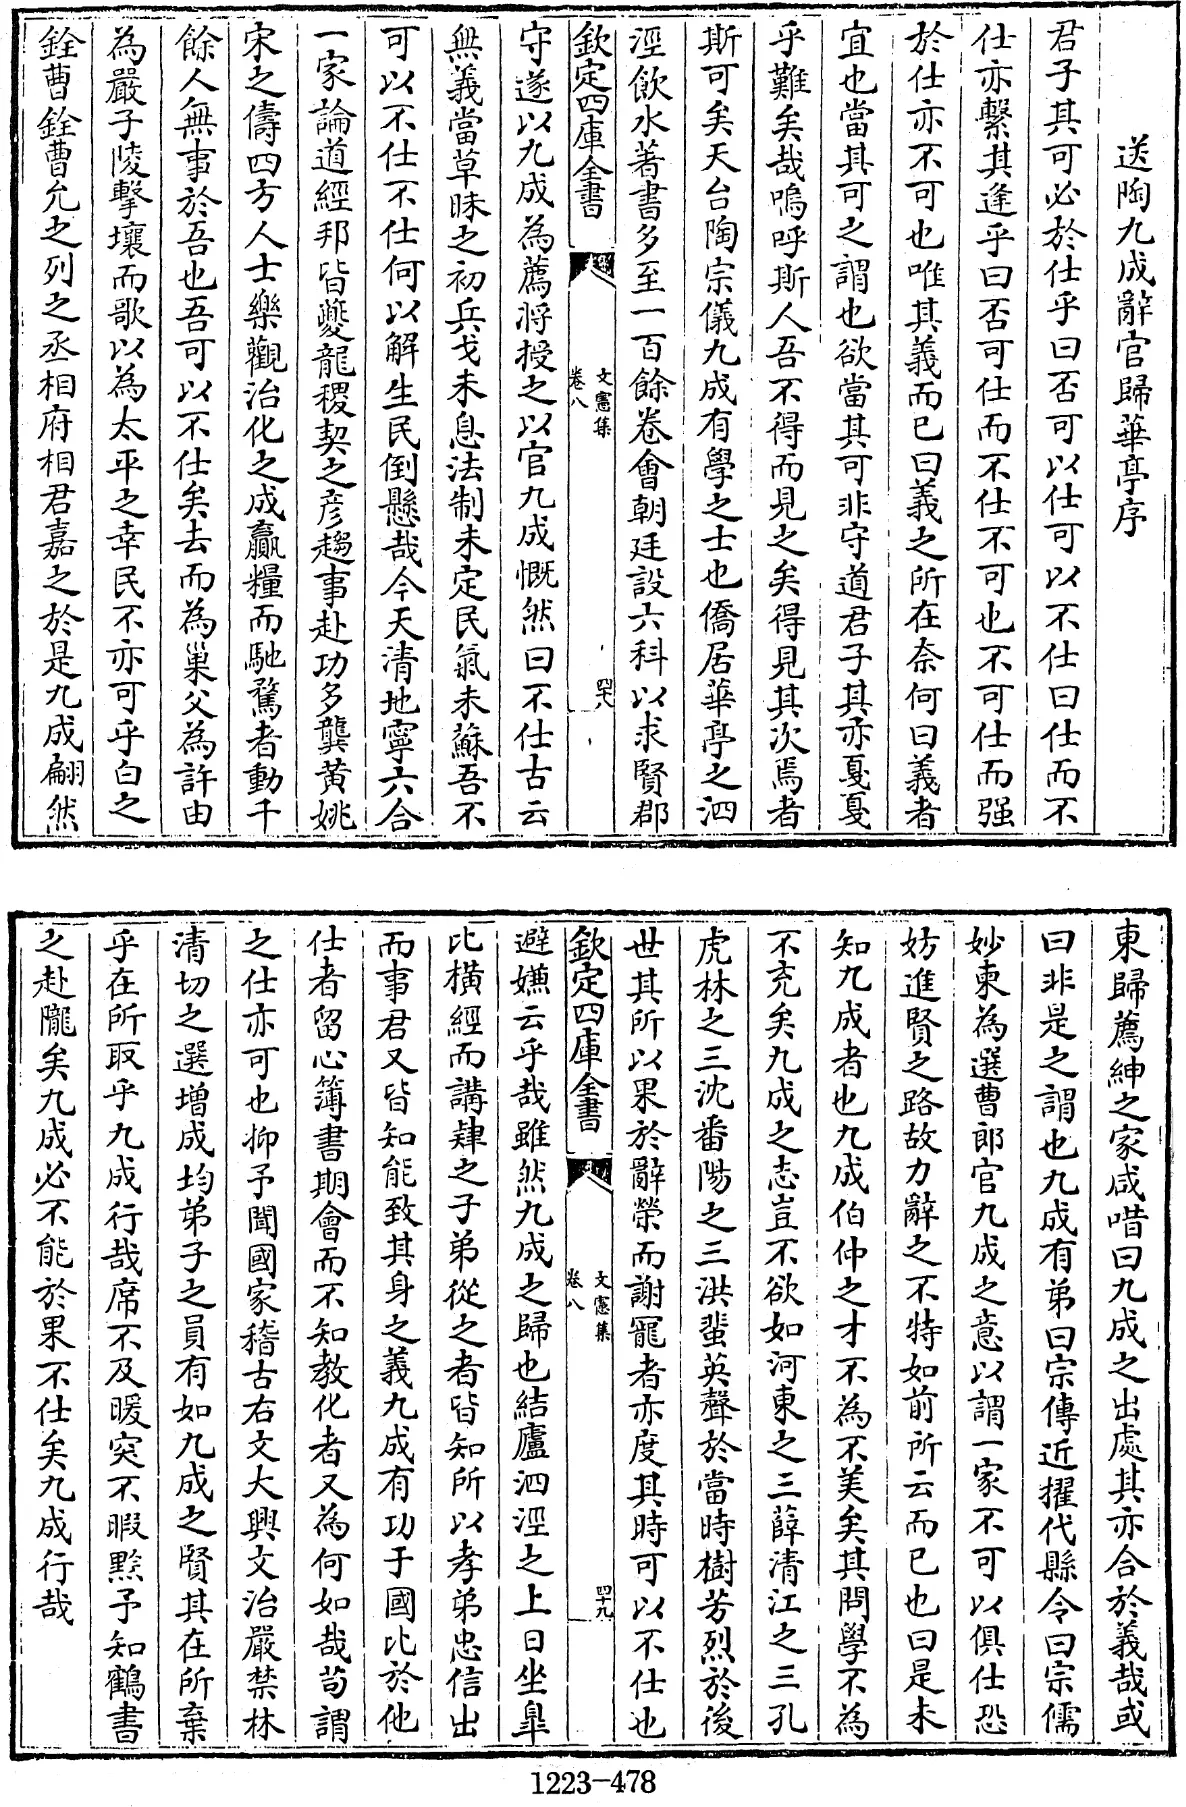 送陶九成辭官歸華亭序
君子其可必於仕乎曰否可以仕可以不仕曰仕而不
仕亦繫其逢乎曰否可仕而不仕不可也不可仕而强
於仕亦不可也唯其義而已曰義之所在奈何曰義者
宜也當其可之謂也欲當其可非守道君子其亦戞戞
乎難矣哉嗚呼斯人吾不得而見之矣得見其次焉者
斯可矣天台陶宗儀九成有學之士也僑居華亭之泗
涇飲水著書多至一百餘卷會朝廷設六科以求賢郡
欽定四庫全書
文憲集
卷八
四十八
守遂以九成為薦將授之以官九成慨然曰不仕古云
無義當草昧之初兵戈未息法制未定民氣未蘇吾不
可以不仕不仕何以解生民倒懸哉今天清地寧六合
一家論道經邦皆夔龍稷契之彦趨事赴功多龔黄姚
宋之儔四方人士樂觀治化之成贏糧而馳騖者動千
餘人無事於吾也吾可以不仕矣去而為巢父為許由
為嚴子陵擊壤而歌以為太平之幸民不亦可乎白之
銓曹銓曹允之列之丞相府相君嘉之於是九成翩然
東歸薦紳之家咸唶曰九成之出處其亦合於義哉或
曰非是之謂也九成有弟曰宗傳近擢代縣令曰宗儒
妙柬為選曹郎官九成之意以謂一家不可以俱仕恐
妨進賢之路故力辭之不特如前所云而已也曰是未
知九成者也九成伯仲之才不為不美矣其問學不為
不充矣九成之志豈不欲如河東之三薛清江之三孔
虎林之三沈番陽之三洪蜚英聲於當時樹芳烈於後
世其所以果於辭榮而謝寵者亦度其時可以不仕也
欽定四庫全書
文憲集
卷八
四十九
避嫌云乎哉雖然九成之歸也結廬泗涇之上日坐臯
比橫經而講肄之子弟從之者皆知所以孝弟忠信出
而事君又皆知能致其身之義九成有功于國比於他
仕者留心簿書期會而不知教化者又為何如哉茍謂
之仕亦可也抑予聞國家稽古右文大興文治嚴禁林
清切之選增成均弟子之員有如九成之賢其在所棄
乎在所取乎九成行哉席不及暖突不暇黔予知鶴書
之赴隴矣九成必不能於果不仕矣九成行哉
1223-478